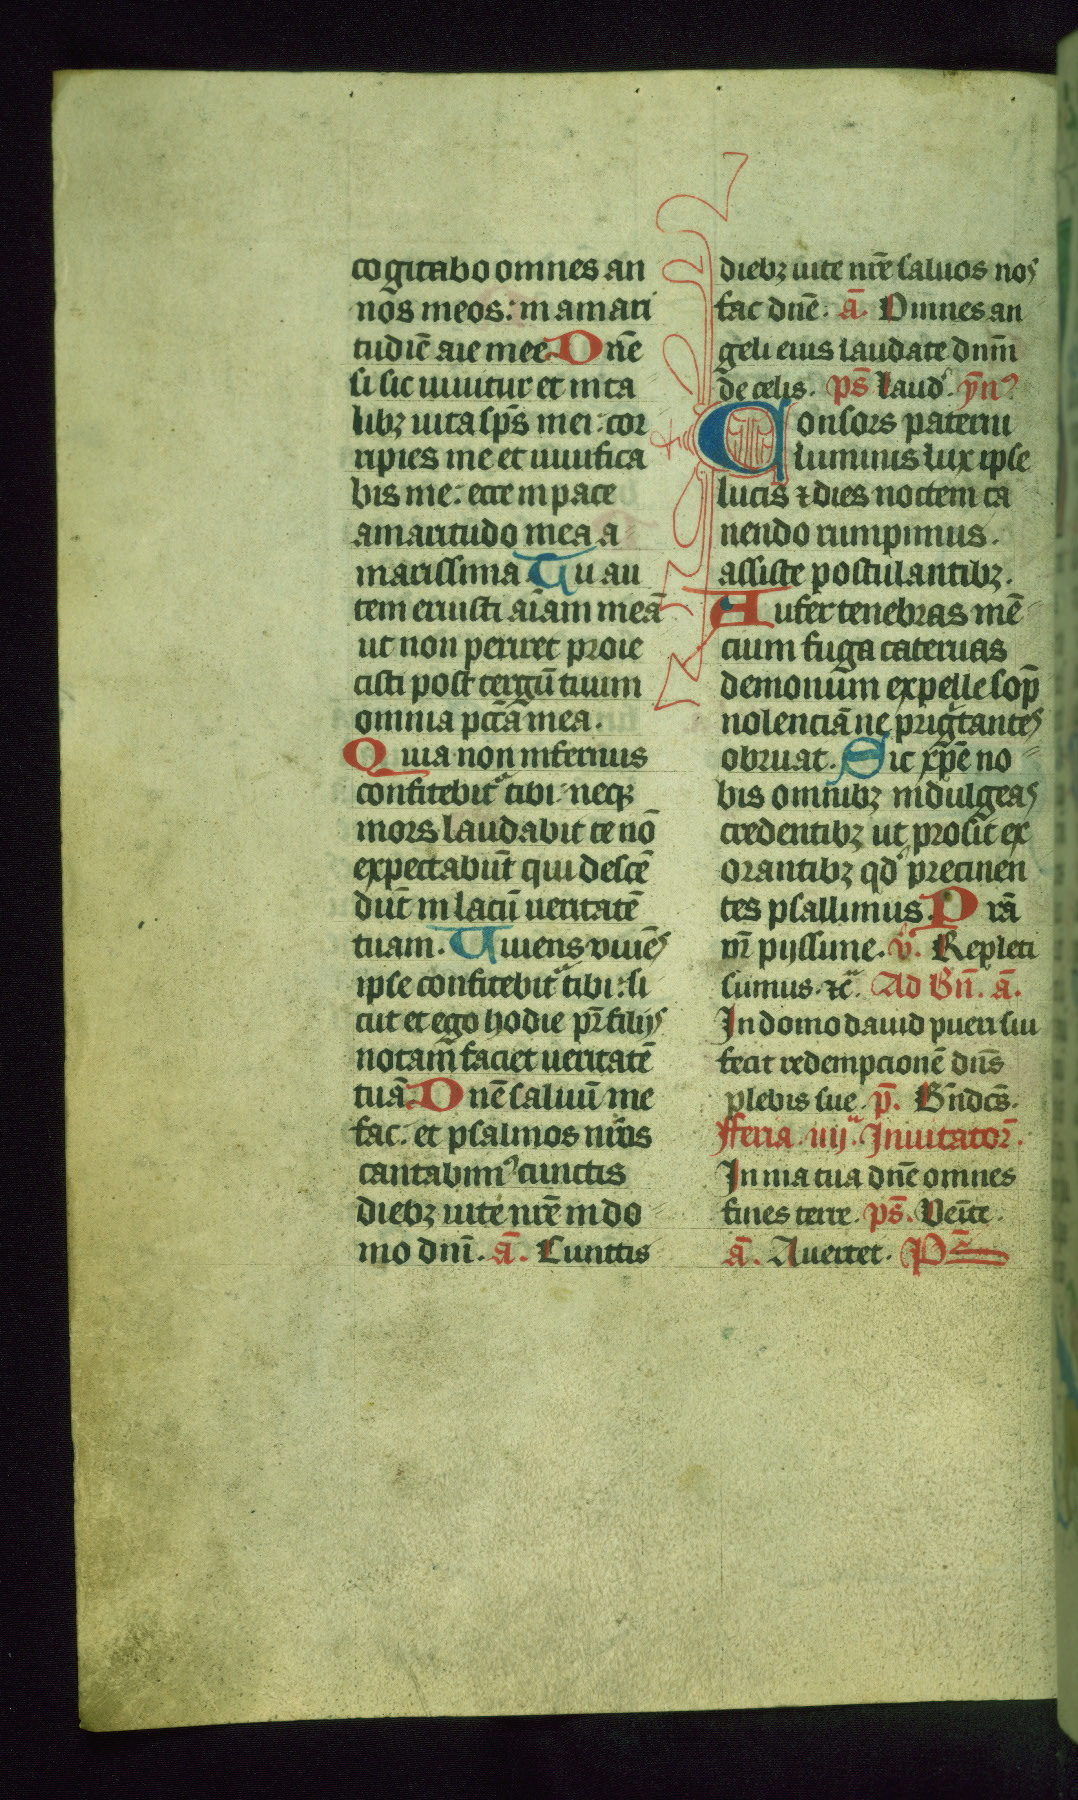 cogitabo omnes an
nos meos: in amari
tudīe aīe mee Dn̄e
si sic uiuitur et in ta
libꝫ uita sp̄s mei: cor
ripies me et uiuifica
bis me: ecce in pace
amaritudo mea a
marissima Tu au
tem eruisti aīam meā
ut non periret proie
cisti post tergū tuum
omnia pctā mea.
Quia non infernus
confitebit᷑ tibi: neqꝫ
mors laudabit te nō
expectabūt qui descē
dūt in lacū ueritatē
tuam. Viuens viuēs
ipse confitebit᷑ tibi: si
cut et ego hodie pr̄ filijs
notam faciet ueritatē
tuā Dn̄e saluū me
fac: et psalmos nr̄os
cantabimꝰ cunctis
diebꝫ uite nr̄e in do
mo dnī. ā. Cunctis
diebꝫ uite nr̄e saluos nos
fac dn̄e. ā. Omnes an
geli eius laudate dnm̄
de celis. ps̄ Laud᷑. ymꝰ
Consors paterni
luminis lux ipse
lucis ⁊ dies noctem ca
nendo rumpimus.
assiste postulantibꝫ.
Aufer tenebras mē
cium fuga cateruas
demonum expelle sop̄
nolenciā ne pigritantes
obruat. Sic xp̄e no
bis omnibꝫ indulgeas
credentibꝫ ut prosit ex
orantibꝫ qd᷑ precinen
tes psallimus. Prā
m̄ pijssime. v̄. Repleti
sumus. ⁊c̄. Ad Bn̄. ā.
In domo dauid pueri sui
fecit redempcionē dn̄s
plebis sue. p̄. Bn̄dcs̄.
fferia. iiij. Inuitator̄.
In ma tua dn̄e omnes
fines terre. ps̄. Uenīte.
ā. Auertet. Ps̄